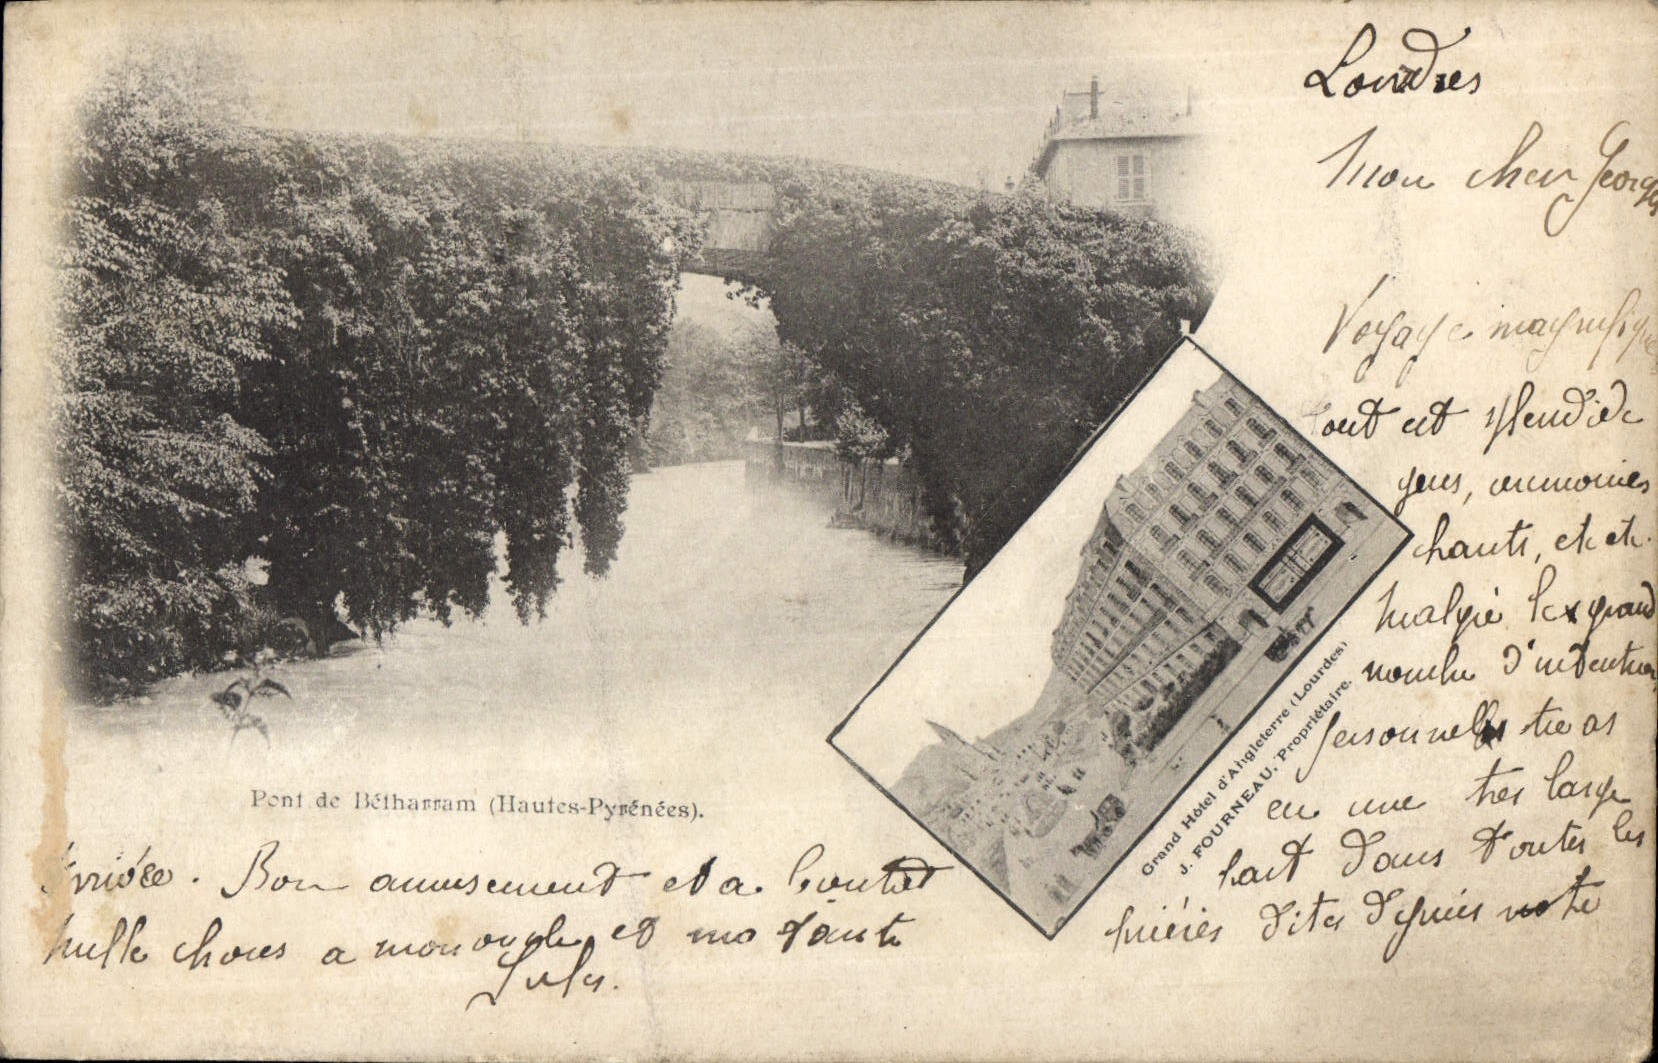 Londres
Mon cher Georges
Voyage magnifique
tout est splendide
gens, ceremonies
chants, etc etc.
Malgré le grand
nombre d'intentions
personnelles tu as
eu une très large
part dans toutes les
prières dites depuis notre
Pont de Bétharram (Hautes-Pyrénées).
Grand Hôtel d'Angleterre (Lourdes)
J. FOURNEAU, Propriétaire.
arrivée. Bon amusement et a bientôt
Mille choses a mon oncle et ma tante
Jules.